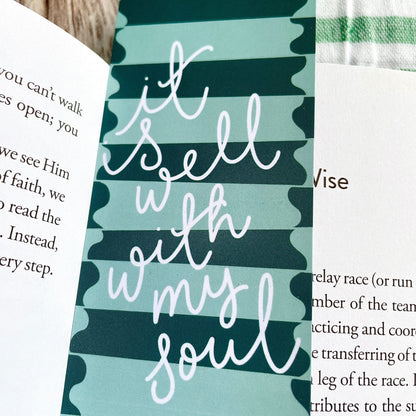 you can't walk
es open; you
we see Him
of faith, we
to read the
. Instead,
ery step.
it
is well
with
my
soul
Wise
relay race (or run
mber of the team
cticing and coor
e transferring of t
leg of the race. I
tributes to the su